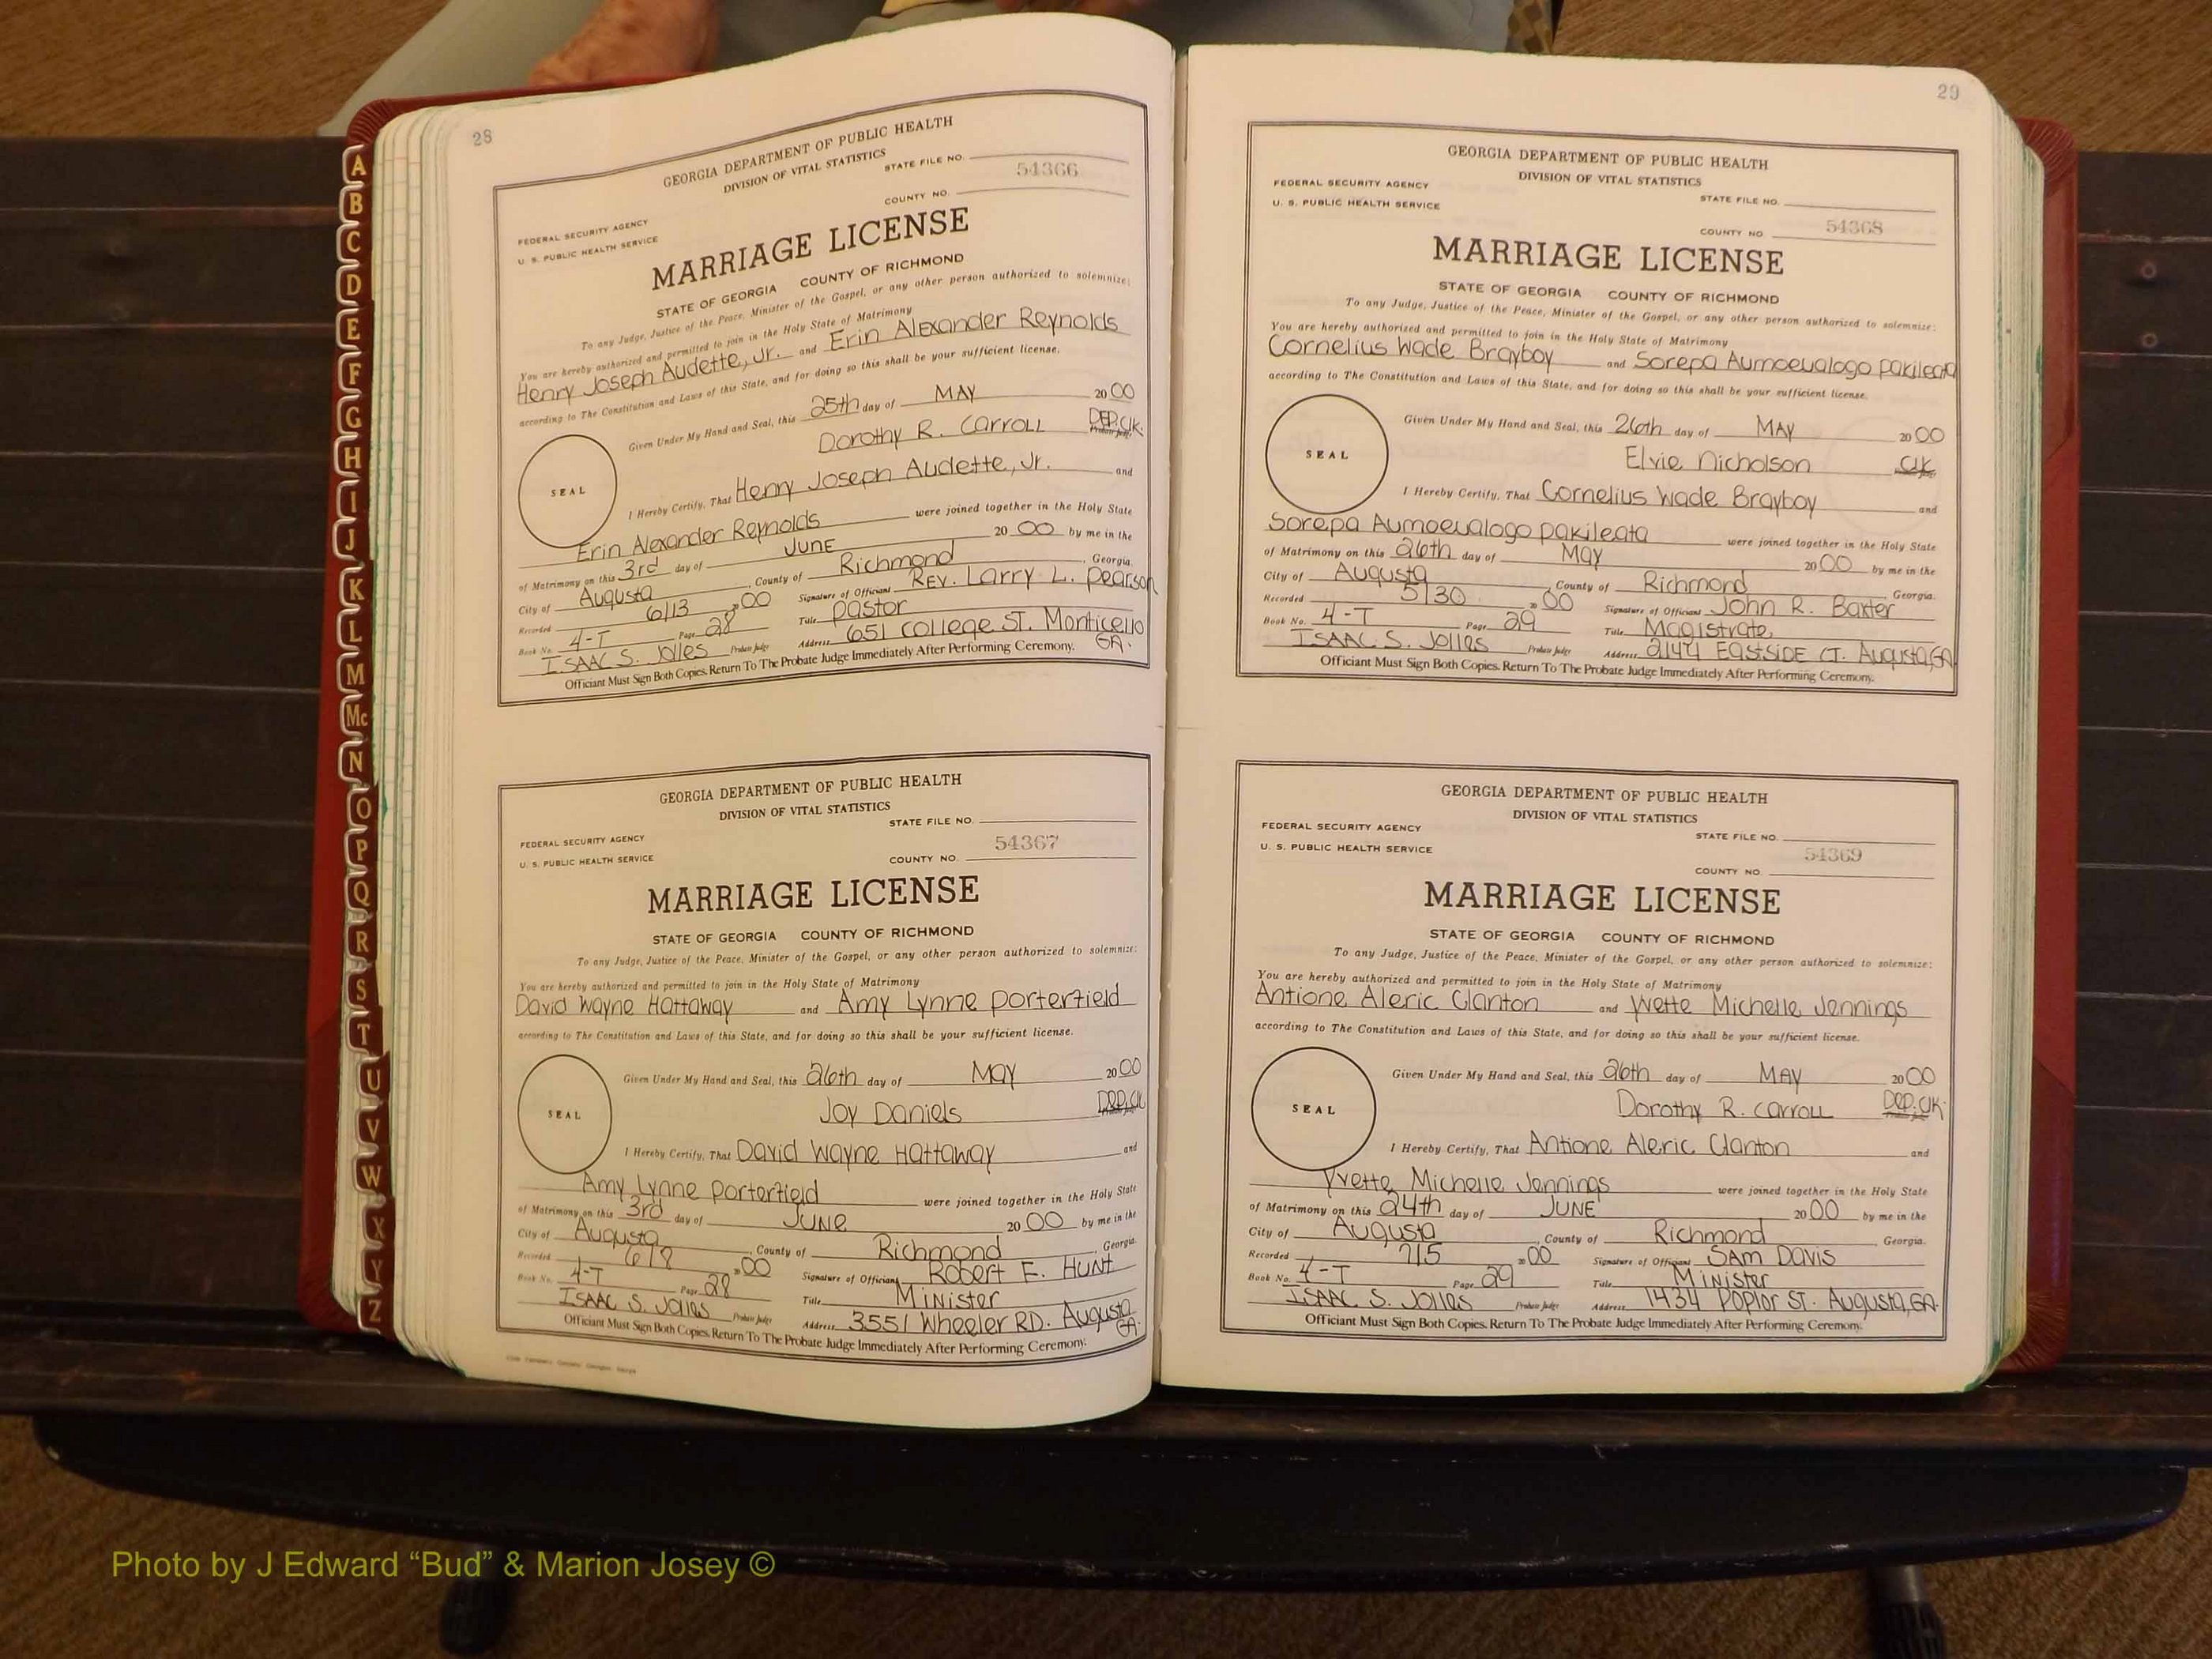 A
B
C
D
E
F
G
H
I
J
K
L
M
Mc
N
O
P
Q
R
S
T
U
V
W
X
Y
Z
28
GEORGIA DEPARTMENT OF PUBLIC HEALTH
DIVISION OF VITAL STATISTICS
STATE FILE NO.
54366
COUNTY NO.
FEDERAL SECURITY AGENCY
U. S. PUBLIC HEALTH SERVICE
MARRIAGE LICENSE
STATE OF GEORGIA COUNTY OF RICHMOND
To any Judge, Justice of the Peace, Minister of the Gospel, or any other person authorized to solemnize:
You are hereby authorized and permitted to join in the Holy State of Matrimony
Henry Joseph Audette, Jr. and Erin Alexander Reynolds
according to The Constitution and Laws of this State, and for doing so this shall be your sufficient license.
Given Under My Hand and Seal, this 25th day of MAY 2000
Dorothy R. Carroll DEP. Clk.
SEAL
I Hereby Certify, That Henry Joseph Audette, Jr. and
Erin Alexander Reynolds were joined together in the Holy State
of Matrimony on this 3rd day of JUNE 20 00 by me in the
City of Augusta, County of Richmond, Georgia.
Recorded 6/13 2000 Signature of Officiant Rev. Larry L. Pearson
Book No. 4-T Page 28 Title Pastor
ISAAC S. Jolles Probate Judge Address 651 College St. Monticello GA.
Officiant Must Sign Both Copies. Return To The Probate Judge Immediately After Performing Ceremony.
GEORGIA DEPARTMENT OF PUBLIC HEALTH
DIVISION OF VITAL STATISTICS
STATE FILE NO.
54367
FEDERAL SECURITY AGENCY
U. S. PUBLIC HEALTH SERVICE
COUNTY NO.
MARRIAGE LICENSE
STATE OF GEORGIA COUNTY OF RICHMOND
To any Judge, Justice of the Peace, Minister of the Gospel, or any other person authorized to solemnize:
You are hereby authorized and permitted to join in the Holy State of Matrimony
David Wayne Hattaway and Amy Lynne Porterfield
according to The Constitution and Laws of this State, and for doing so this shall be your sufficient license.
Given Under My Hand and Seal, this 26th day of May 2000
Joy Daniels Dep. Clk
SEAL
I Hereby Certify, That David Wayne Hattaway and
Amy Lynne Porterfield were joined together in the Holy State
of Matrimony on this 3rd day of JUNE 20 00 by me in the
City of Augusta, County of Richmond, Georgia.
Recorded 6/8 2000 Signature of Officiant Robert E. Hunt
Book No. 4-T Page 28 Title Minister
ISAAC S. Jolles Probate Judge Address 3551 Wheeler RD. Augusta GA.
Officiant Must Sign Both Copies. Return To The Probate Judge Immediately After Performing Ceremony.
29
GEORGIA DEPARTMENT OF PUBLIC HEALTH
DIVISION OF VITAL STATISTICS
FEDERAL SECURITY AGENCY
U. S. PUBLIC HEALTH SERVICE
STATE FILE NO.
54368
COUNTY NO
MARRIAGE LICENSE
STATE OF GEORGIA COUNTY OF RICHMOND
To any Judge, Justice of the Peace, Minister of the Gospel, or any other person authorized to solemnize:
You are hereby authorized and permitted to join in the Holy State of Matrimony
Cornelius Wade Brayboy and Sorepa Aumoeualogo Pakileata
according to The Constitution and Laws of this State, and for doing so this shall be your sufficient license.
Given Under My Hand and Seal, this 26th day of MAY 2000
Elvie Nicholson Clk.
SEAL
I Hereby Certify, That Cornelius Wade Brayboy and
Sorepa Aumoeualogo Pakileata were joined together in the Holy State
of Matrimony on this 26th day of May 2000 by me in the
City of Augusta, County of Richmond Georgia.
Recorded 5/30 2000 Signature of Officiant John R. Baxter
Book No. 4-T Page 29 Title Magistrate
ISAAC S. Jolles Probate Judge Address EastSIDE CT. Augusta, GA
Officiant Must Sign Both Copies. Return To The Probate Judge Immediately After Performing Ceremony.
GEORGIA DEPARTMENT OF PUBLIC HEALTH
DIVISION OF VITAL STATISTICS
FEDERAL SECURITY AGENCY
U. S. PUBLIC HEALTH SERVICE
STATE FILE NO.
54369
COUNTY NO.
MARRIAGE LICENSE
STATE OF GEORGIA COUNTY OF RICHMOND
To any Judge, Justice of the Peace, Minister of the Gospel, or any other person authorized to solemnize:
You are hereby authorized and permitted to join in the Holy State of Matrimony
Antione Aleric Clanton and Yvette Michelle Jennings
according to The Constitution and Laws of this State, and for doing so this shall be your sufficient license.
Given Under My Hand and Seal, this 26th day of MAY 2000
Dorothy R. Carroll Dep. Clk.
SEAL
I Hereby Certify, That Antione Aleric Clanton and
Yvette Michelle Jennings were joined together in the Holy State
of Matrimony on this 24th day of JUNE 2000 by me in the
City of Augusta, County of Richmond Georgia.
Recorded 7/5 2000 Signature of Officiant SAm Davis
Book No. 4-T Page 29 Title Minister
ISAAC S. Jolles Probate Judge Address 1434 Poplar ST. Augusta, GA.
Officiant Must Sign Both Copies. Return To The Probate Judge Immediately After Performing Ceremony.
Photo by J Edward “Bud” & Marion Josey ©